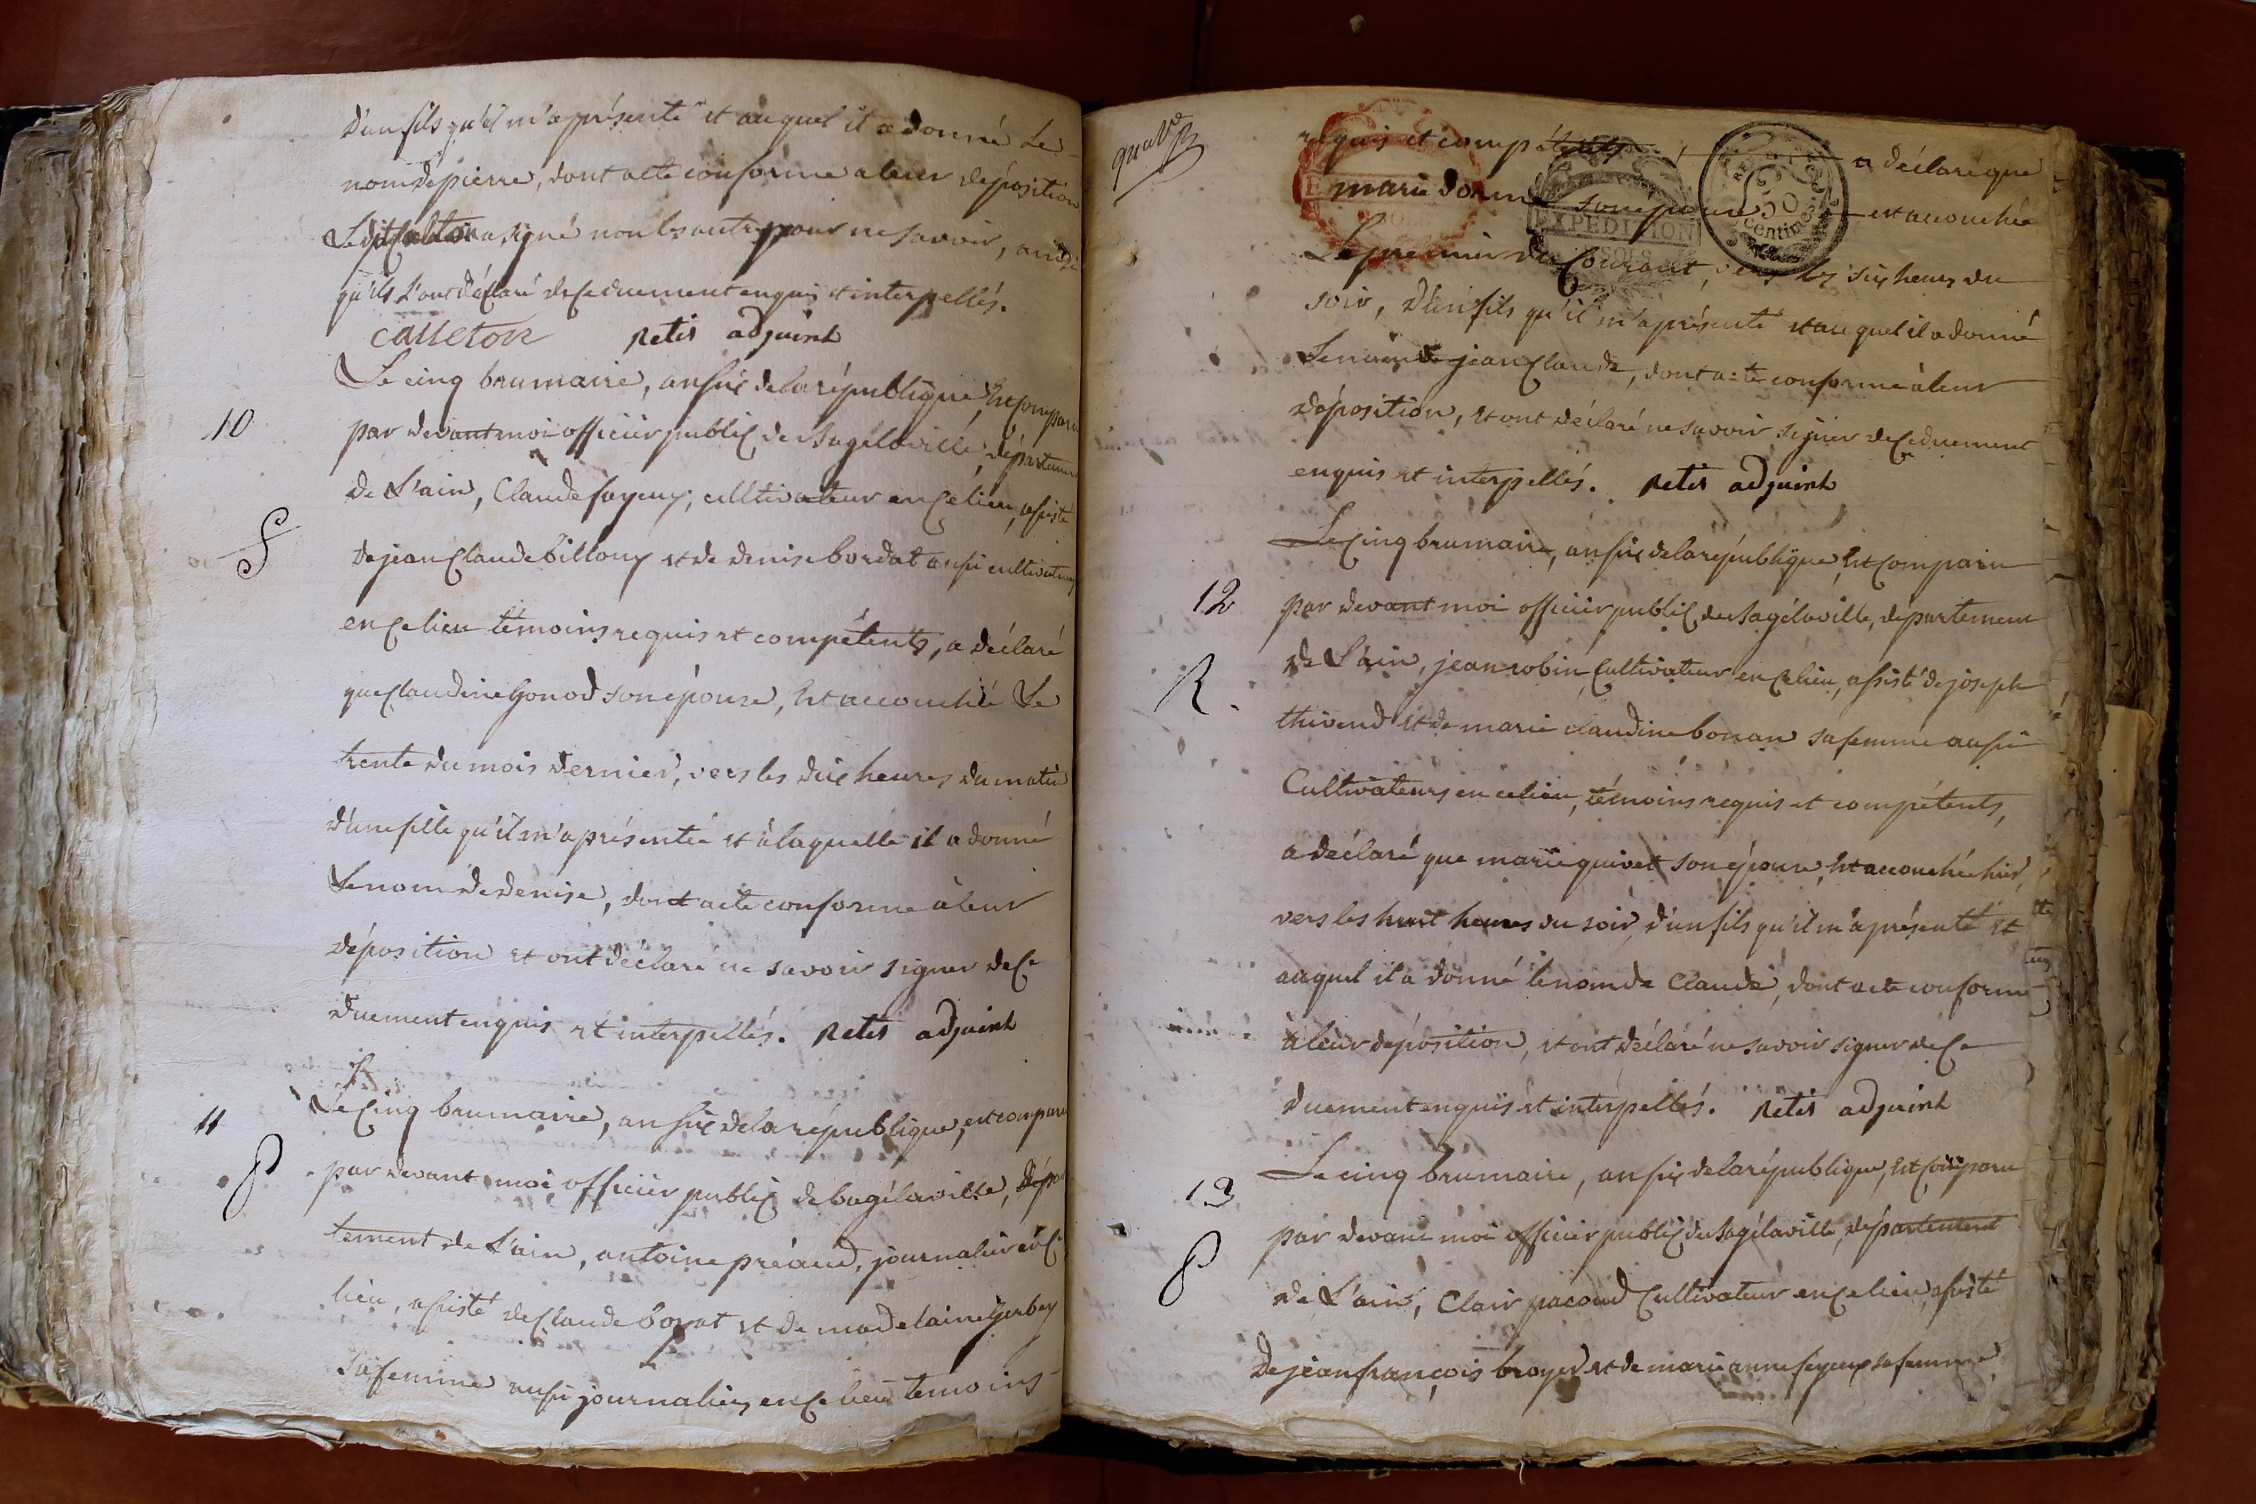 d'un fils qu'il m'a présenté et auquel il a donné Le
nom de pierre, dont acte conforme a leur déposition
Ledit Calleton a signé non les autres pour ne savoir, ainsi
qu'ils L'ont déclaré de ce duement enquis et interpellés.
calleton Retis adjoint
Le cinq brumaire, an six de la république, Est comparu
10 par devant moi officier public de bagélaville, département
de L'ain, Claude fayeux, cultivateur en ce lieu, assisté
f de jean Claude billoux et de denise bordat aussi cultivateurs
en ce lieu témoins requis et compétents, a déclaré
que Claudine Gonod son épouse, Est accouchée Le
trente du mois dernier, vers les dix heures du matin
d'une fille qu'il m'a présentée et à laquelle il a donné
Le nom de denise, dont acte conforme à leur
déposition et ont déclaré ne savoir signer de ce
duement enquis et interpellés. Retis adjoint
Le Cinq brumaire, an six de la république, est comparu
11 par devant moi officier public de bagélaville, dépar
P tement de L'ain, antoine préaud, journalier en ce
lieu, assisté de Claude borat et de madelaine Gerbey
sa femme aussi journaliers en ce lieu témoins
requis et compétents a déclaré que
marie son épouse est accouchée
Le premier du Courant, vers les six heures du
soir, d'un fils qu'il m'a présenté et auquel il a donné
Le nom de jean Claude, dont acte conforme à leur
déposition, et ont déclaré ne savoir signer de ce duement
enquis et interpellés. Retis adjoint
Le Cinq brumaire, an six de la république, Est Comparu
12 par devant moi officier public de bagélaville, département
de L'ain, jean robin Cultivateur en ce lieu, assisté de joseph
R. thivend et de marie claudine bonan sa femme aussi
Cultivateurs en ce lieu, témoins requis et compétents,
a déclaré que marie guivet son épouse, Est accouchée hier,
vers les huit heures du soir, d'un fils qu'il m'a présenté et
auquel il a donné le nom de Claude, dont acte conforme
à leur déposition, et ont déclaré ne savoir signer de ce
duement enquis et interpellés. Retis adjoint
Le cinq brumaire, an six de la république, Est Comparu
13 par devant moi officier public de bagélaville, département
P de L'ain, Clair pacoud Cultivateur en ce lieu, assisté
de jean françois broyer et de marie anne feyeux sa femme
EXPEDITION
50
centimes